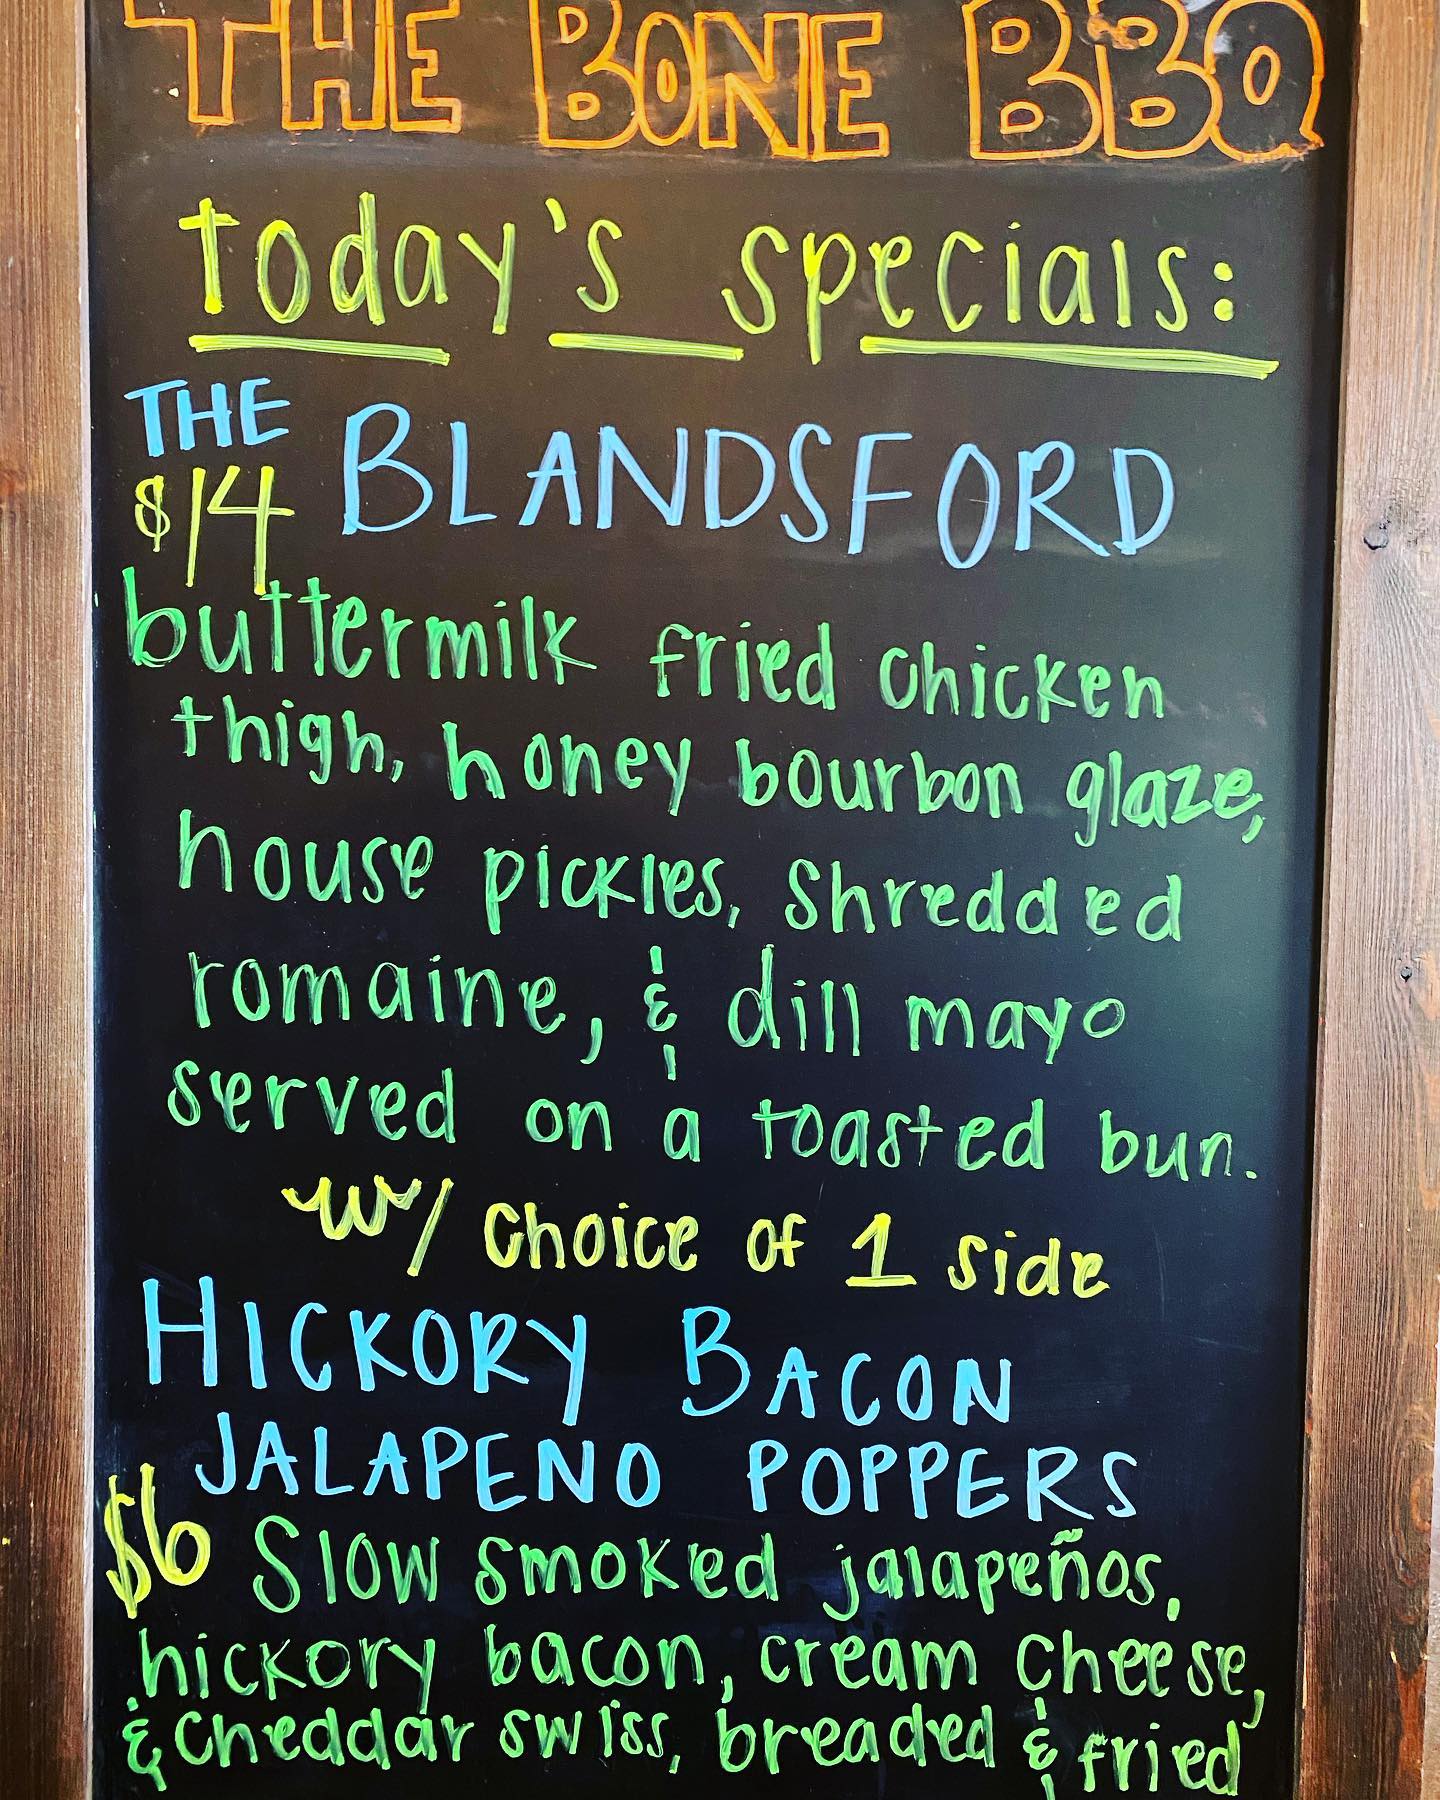 THE BONE BBQ
today's specials:
THE
$14 BLANDSFORD
buttermilk fried chicken
thigh, honey bourbon glaze,
house pickles, shredded
romaine, & dill mayo
served on a toasted bun.
w/ choice of 1 side
HICKORY BACON
JALAPENO POPPERS
$6 Slow smoked jalapeños,
hickory bacon, cream cheese,
& cheddar swiss, breaded & fried